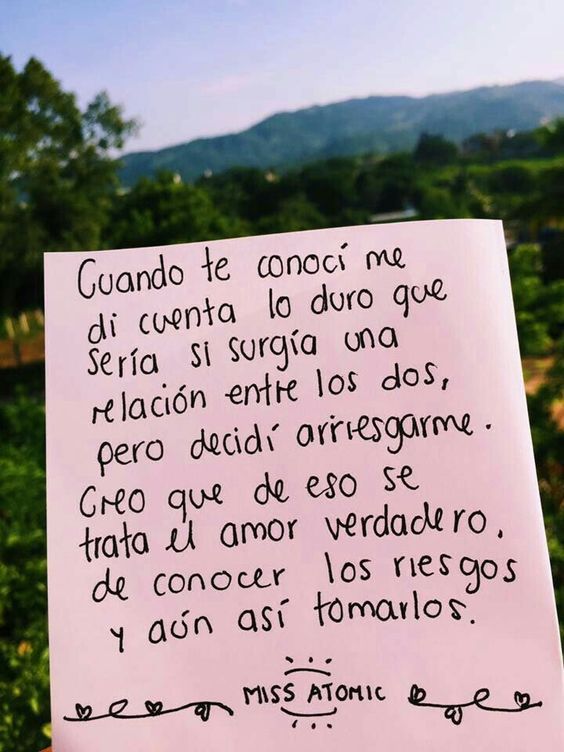 Cuando te conocí me
di cuenta lo duro que
sería si surgía una
relación entre los dos,
pero decidí arriesgarme.
Creo que de eso se
trata el amor verdadero,
de conocer los riesgos
y aún así tomarlos.
MISS ATOMIC